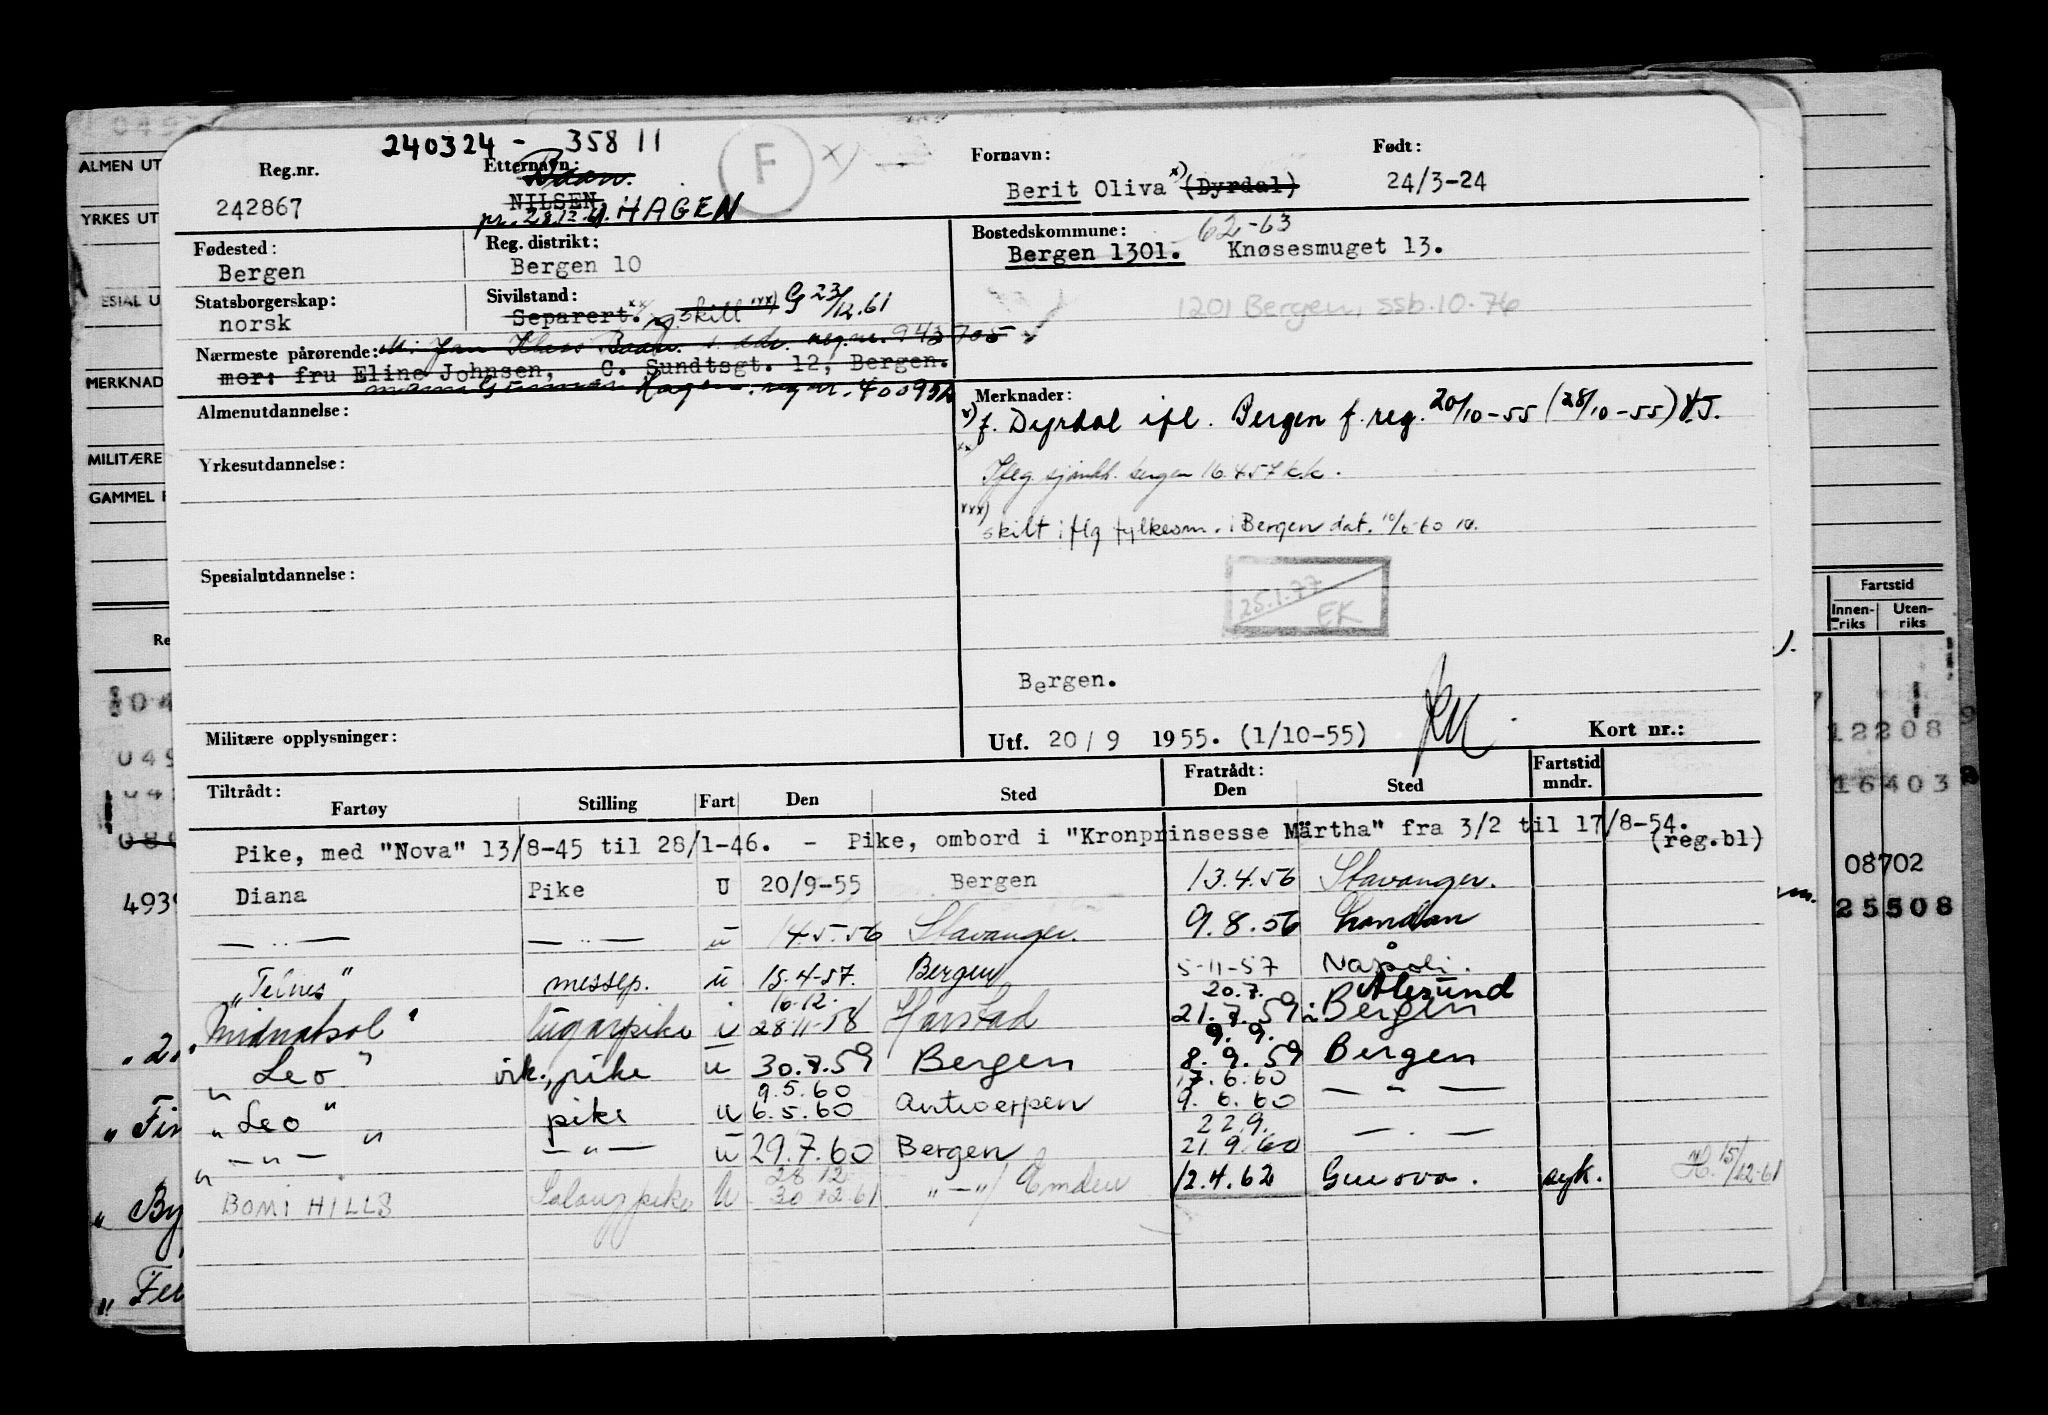 240324 - 35811
Reg.nr. Etternavn: F x) Fornavn: Født:
Baan.
242867 NILSEN Berit Oliva x) (Dyrdal) 24/3-24
pr. 28/12-61. HAGEN
Fødested: Reg. distrikt: Bostedskommune: 62-63
Bergen Bergen 10 Bergen 1301. Knøsesmuget 13.
Statsborgerskap: Sivilstand:
norsk Separert. xx) skilt xxx) G 23/12.61
1201 Bergen, ssb.10.76
Nærmeste pårørende: M: Jan Klaas Baan. reg.nr. 943705
mor: fru Eline Johnsen, C. Sundtsgt. 12, Bergen.
mann Gunnar Hagen. reg nr. 400952
Almenutdannelse: Merknader:
x) f. Dyrdal ifl. Bergen f. reg. 20/10-55 (28/10-55)
xx)
Yrkesutdannelse: Iflg. sjømkt. bergen 16.4.57 k.k.
xxx)
skilt iflg fylkesm. i Bergen dat. 10/6-60
Spesialutdannelse:
25.1.77
EK
Bergen.
Militære opplysninger: Utf. 20/9 1955. (1/10-55) Kort nr.:
Tiltrådt: Fratrådt: Fartstid
Fartøy Stilling Fart Den Sted Den Sted mndr.
Pike, med "Nova" 13/8-45 til 28/1-46. - Pike, ombord i "Kronprinsesse Märtha" fra 3/2 til 17/8-54.
(reg.bl)
Diana Pike U 20/9-55 Bergen 13.4.56 Stavanger.
— .. — — .. — u 14.5.56 Stavanger. 9.8.56 London
"Teines" messep. u 15.4-57. Bergen 5-11-57 Napoli.
10.12. 20.7. Ålesund
"Midnatsol" lugarpike i 28.11-58 Harstad 21.7.59 Bergen
9.9.
"Leo" vik. pike u 30.7.59 Bergen 8.9.59 Bergen
9.5.60 17.6.60
"Leo" pike u 6.5.60 Antwerpen 9.6.60 — " —
22.9.
" — " — " — " — u 29.7.60 Bergen 21.9.60 — . —
28 12
BOMI HILLS Salongpike U 30 12.61 " — " / Emden 12.4.62 Genova. syk. H. 15/12-61
ALMEN UT
YRKES UT
ESIAL U
MERKNAD
MILITÆRE
GAMMEL
Fartstid
Innen- Uten-
riks riks
12208
16403
08702
25508